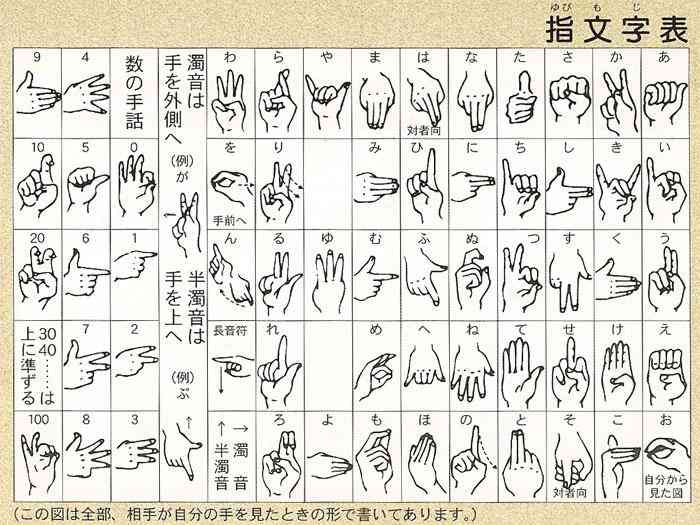 ゆび も じ
指文字表
あ
い
う
え
お
自分から
見た図
か
き
く
け
こ
さ
し
す
せ
そ
対者向
た
ち
つ
て
と
な
に
ぬ
ね
の
は
対者向
ひ
ふ
へ
ほ
ま
み
む
め
も
や
ゆ
よ
ら
り
る
れ
ろ
わ
を
手前へ
ん
長音符
↓
→濁音
↑半濁音
濁音は
手を外側へ
(例)が
←
半濁音は
手を上へ
(例)ぷ
↑
数の手話
0
1
2
3
4
5
6
7
8
9
10
20
30
40……は
上に準ずる
100
(この図は全部、相手が自分の手を見たときの形で書いてあります。)